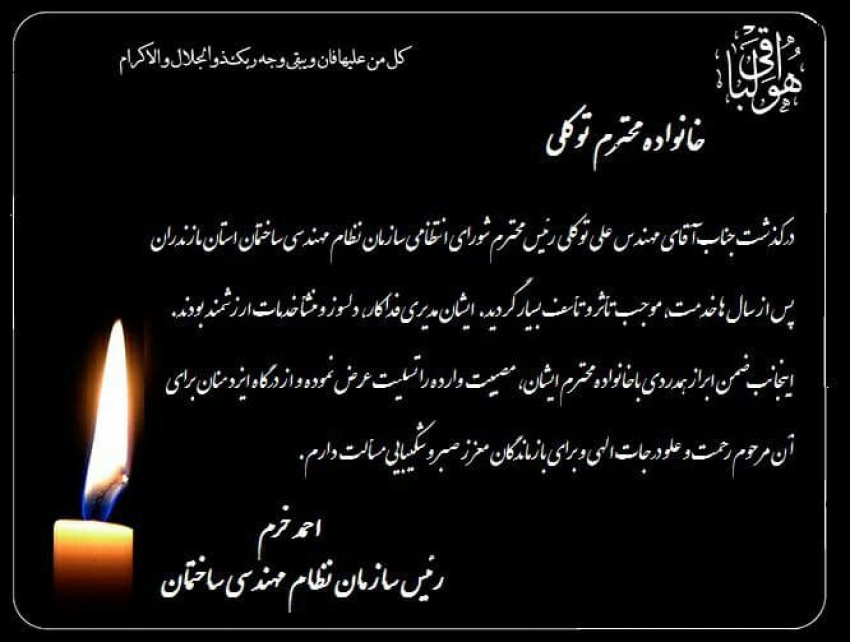 هوالباقی
کل من علیها فان و یبقی وجه ربک ذوالجلال والاکرام
خانواده محترم توکلی
درگذشت جناب آقای مهندس علی توکلی رئیس محترم شورای انتظامی سازمان نظام مهندسی ساختمان استان مازندران
پس از سال ها خدمت، موجب تأثر و تأسف بسیار گردید. ایشان مدیری فداکار، دلسوز و منشأ خدمات ارزشمند بودند.
اینجانب ضمن ابراز همدردی با خانواده محترم ایشان، مصیبت وارده را تسلیت عرض نموده و از درگاه ایزد منان برای
آن مرحوم رحمت و علو درجات الهی و برای بازماندگان معزز صبر و شکیبایی مسألت دارم.
احمد خرم
رئیس سازمان نظام مهندسی ساختمان